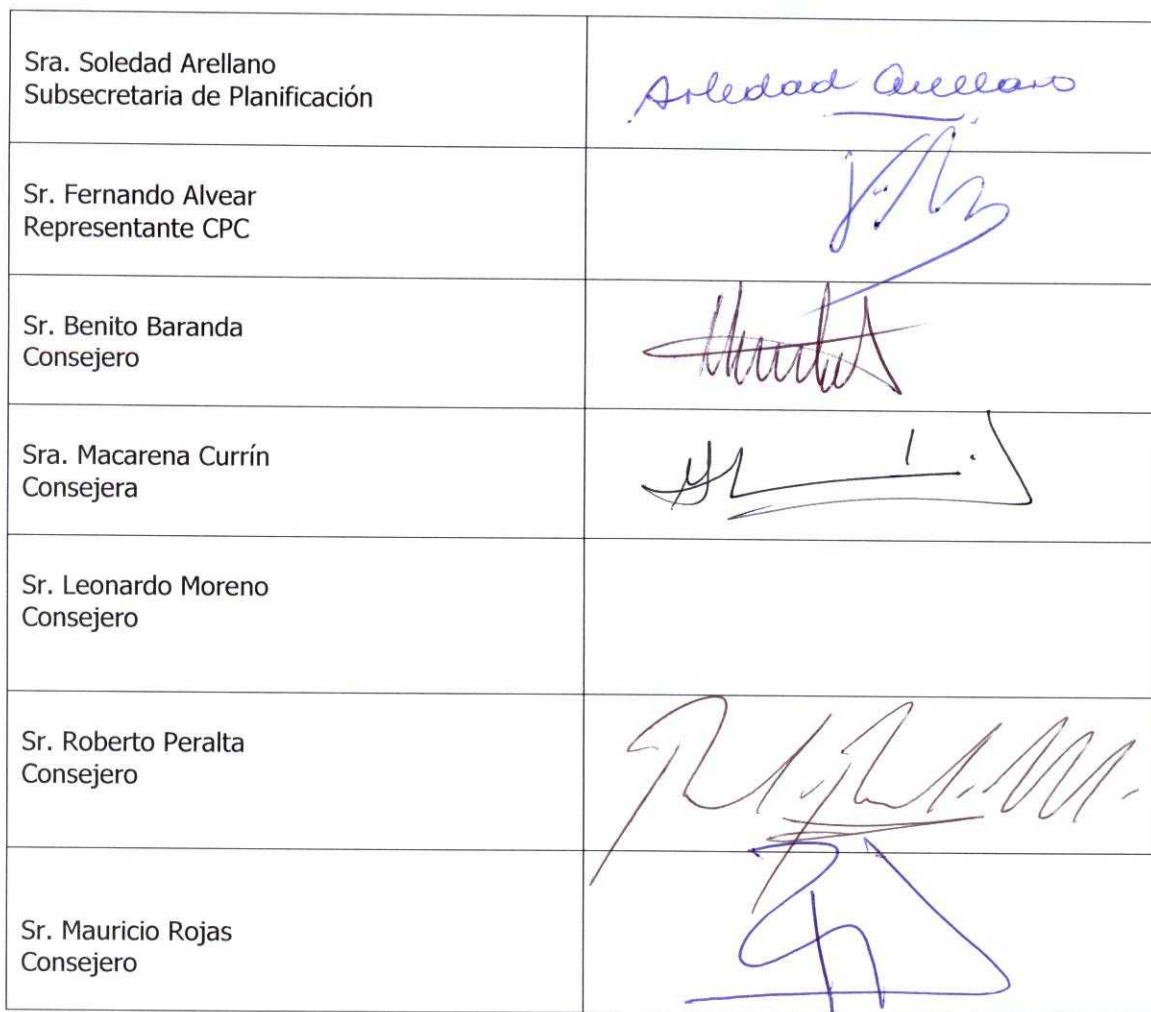 Sra. Soledad Arellano
Subsecretaria de Planificación
Soledad Arellano
Sr. Fernando Alvear
Representante CPC
Sr. Benito Baranda
Consejero
Sra. Macarena Currín
Consejera
Sr. Leonardo Moreno
Consejero
Sr. Roberto Peralta
Consejero
Sr. Mauricio Rojas
Consejero